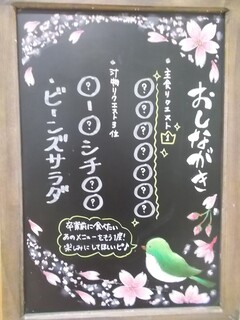 おしながき
・主食リクエスト1位
??????????
・汁物リクエスト3位
?ー?シチ??
・ビーンズサラダ
卒業前に食べたい
あのメニューをもう1度!
楽しみにしてほしいピョ